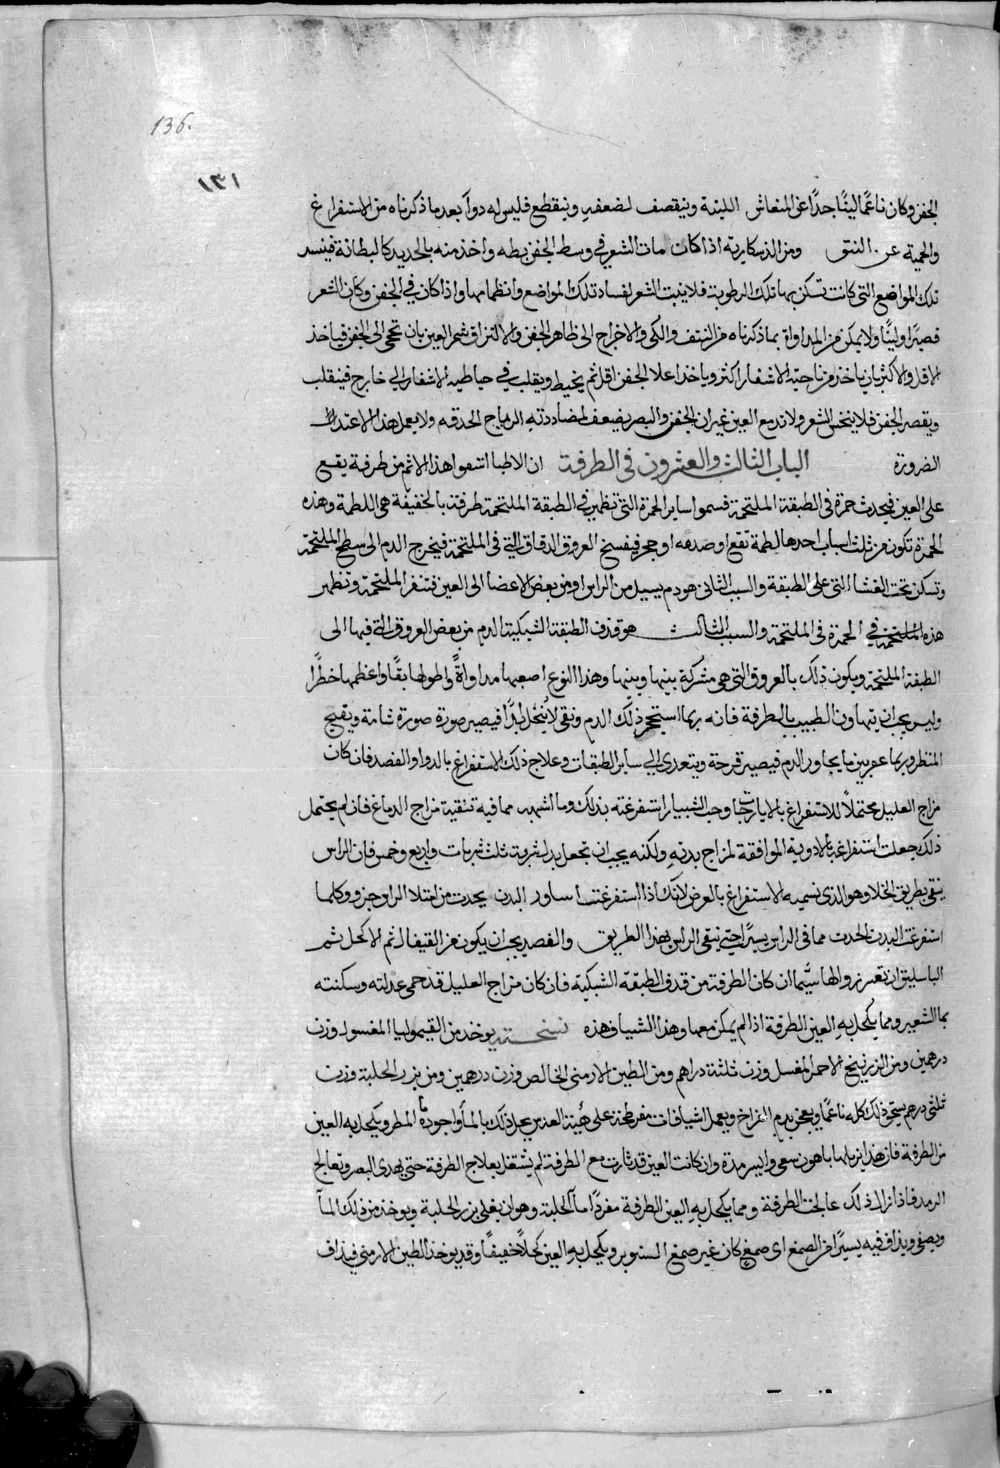 136.
١٣١
الجفن وكان ناعمًا لينًا جدًا عن المنقاش اللينة وينقصف لضعفه وينقطع فليس له دوآ بعد ما ذكرناه من الاستفراغ
والحمية عن النتق ومن الدساكرية اذا كان مات الشعر في وسط الجفن بطه واخذ منه بالحديد كالبطانة فيفسد
تلك المواضع التي كانت تسكن بها تلك الرطوبة فلا ينبت الشعر لفساد تلك المواضع وانظمامها واذا كان في الجفن وكان الشعر
قصيرًا ولينًا ولا يمكن من المداواة بما ذكرناه من النتف والكي والاخراج الى ظاهر الجفن والالتزاق شمر العين بان تجي الى الجفن فياخذ
الاقل والاكثر بان ياخذ من ناحية الاشفار اكثر وياخذ اعلا الجفن اقل ثم يخيط ويقلب في خياطيه الاشفار الى خارج فينقلب
ويقصر الجفن فلا ينخس الشعر ولا تدمع العين غير ان الجفن والبصر يضعف لمضاددته الرماج الحدقه ولا يعمل هذا الا عند
الضرورة الباب الثالث والعشرون في الطرفة ان الاطبا اشتقوا هذا الاسم من طرفة يقع
على العين فيحدث حمرة في الطبقة الملتحمة فسموا ساير الحمرة التي تظهر في الطبقة الملتحمة طرفة بالحقيقة هي اللطمة وهذه
الحمرة تكون من ثلث اسباب احدها لطمة تقع او صدمه او حجر فيفسخ العروق الدقاق التي في الملتحمة فيخرج الدم الى سطح الملتحمة
وتسكن تحت الغشا التي على الطبقة والسبب الثاني هو دم يسيل من الراس او من بعض الاعضا الى العين فتنفر الملتحمة وتظهر
هذه الملتحمة في الحمرة في الملتحمة والسبب الثالث هو قذف الطبقة الشبكية الدم من بعض العروق التي فيها الى
الطبقة الملتحمة ويكون ذلك بالعروق التي هي مشركة بينها وبينها وهذا النوع اصعبها مداواةً واطولها بقًا واعظمها خطرًا
وليس يجب ان يتهاون الطبيب بالطرفة فانه ربما استحجر ذلك الدم وبقي لا ينحل ابدًا فيصير صورة صورة شامة ويقبح
المنظر وربما عفر بين ما يجاور الدم فيصير قرحة ويتعدى الى ساير الطبقات وعلاج ذلك الاستفراغ بالدوا والفصد فان كان
مزاج العليل محتملاً للاستفراغ بالايارجات وحب الشبيار استفرغته بذلك وما اشبهه مما فيه تنقية مزاج الدماغ فان لم يحتمل
ذلك جعلت استفراغه بالادوية الموافقة لمزاج بدنه ولكنه يجب ان تجعل بدل شربة ثلث شربات واربع وخمس فان الراس
ينقى بطريق الخلا وهو الذي نسميه الاستفراغ بالعرض لانك اذا استفرغت اساور البدن يحدث من امتلا الراس جزو وكلما
استفرغت البدن انحدرت مما في الراس يسيرًا حتى ينقى الراس بهذا الطريق والفصد يجب ان يكون من القيفال ثم الاكحل ثم
الباسليق ان تعسر زوالها سيّما ان كان الطرفة من قذف الطبقة الشبكية فان كان مزاج العليل قد حمى عدلته وسكنته
بما الشعير ومما يكحل به العين الطرفة اذا لم يكن معها وهذا الشياف هذه نسخته يوخذ من القيموليا المغسول وزن
درهمين ومن الزرنيخ الاحمر المغسل وزن ثلثة دراهم ومن الطين الارمني الخالص وزن درهمين ومن بزر الحلبة وزن
ثلثي درهم يسحق ذلك كله ناعمًا ويعجن بدم الفراخ ويعمل اشيافات مفرطحة على هيئة العدس يحل ذلك بالمآ واجوده ما المطر ويكحل به العين
من الطرفة فان هذا يزيلها باهون سعي وايسر مدة وان كانت العين قد ثارت مع الطرفة لم يشتغل بعلاج الطرفة حتى يهدى البصر وتعالج
الرمد فاذا زال ذلك عالجت الطرفة ومما يكحل به العين الطرفة مفردًا مآ الحلبة وهو ان يغلى بزر الحلبة ويوخذ من ذلك المآ
ويصفى ويذاف فيه يسيرًا من الصمغ اي صمغ كان غير صمغ السنوبر ويكحل به العين كحلاً خفيفًا وقد يوخذ الطين الارمني فيذاف